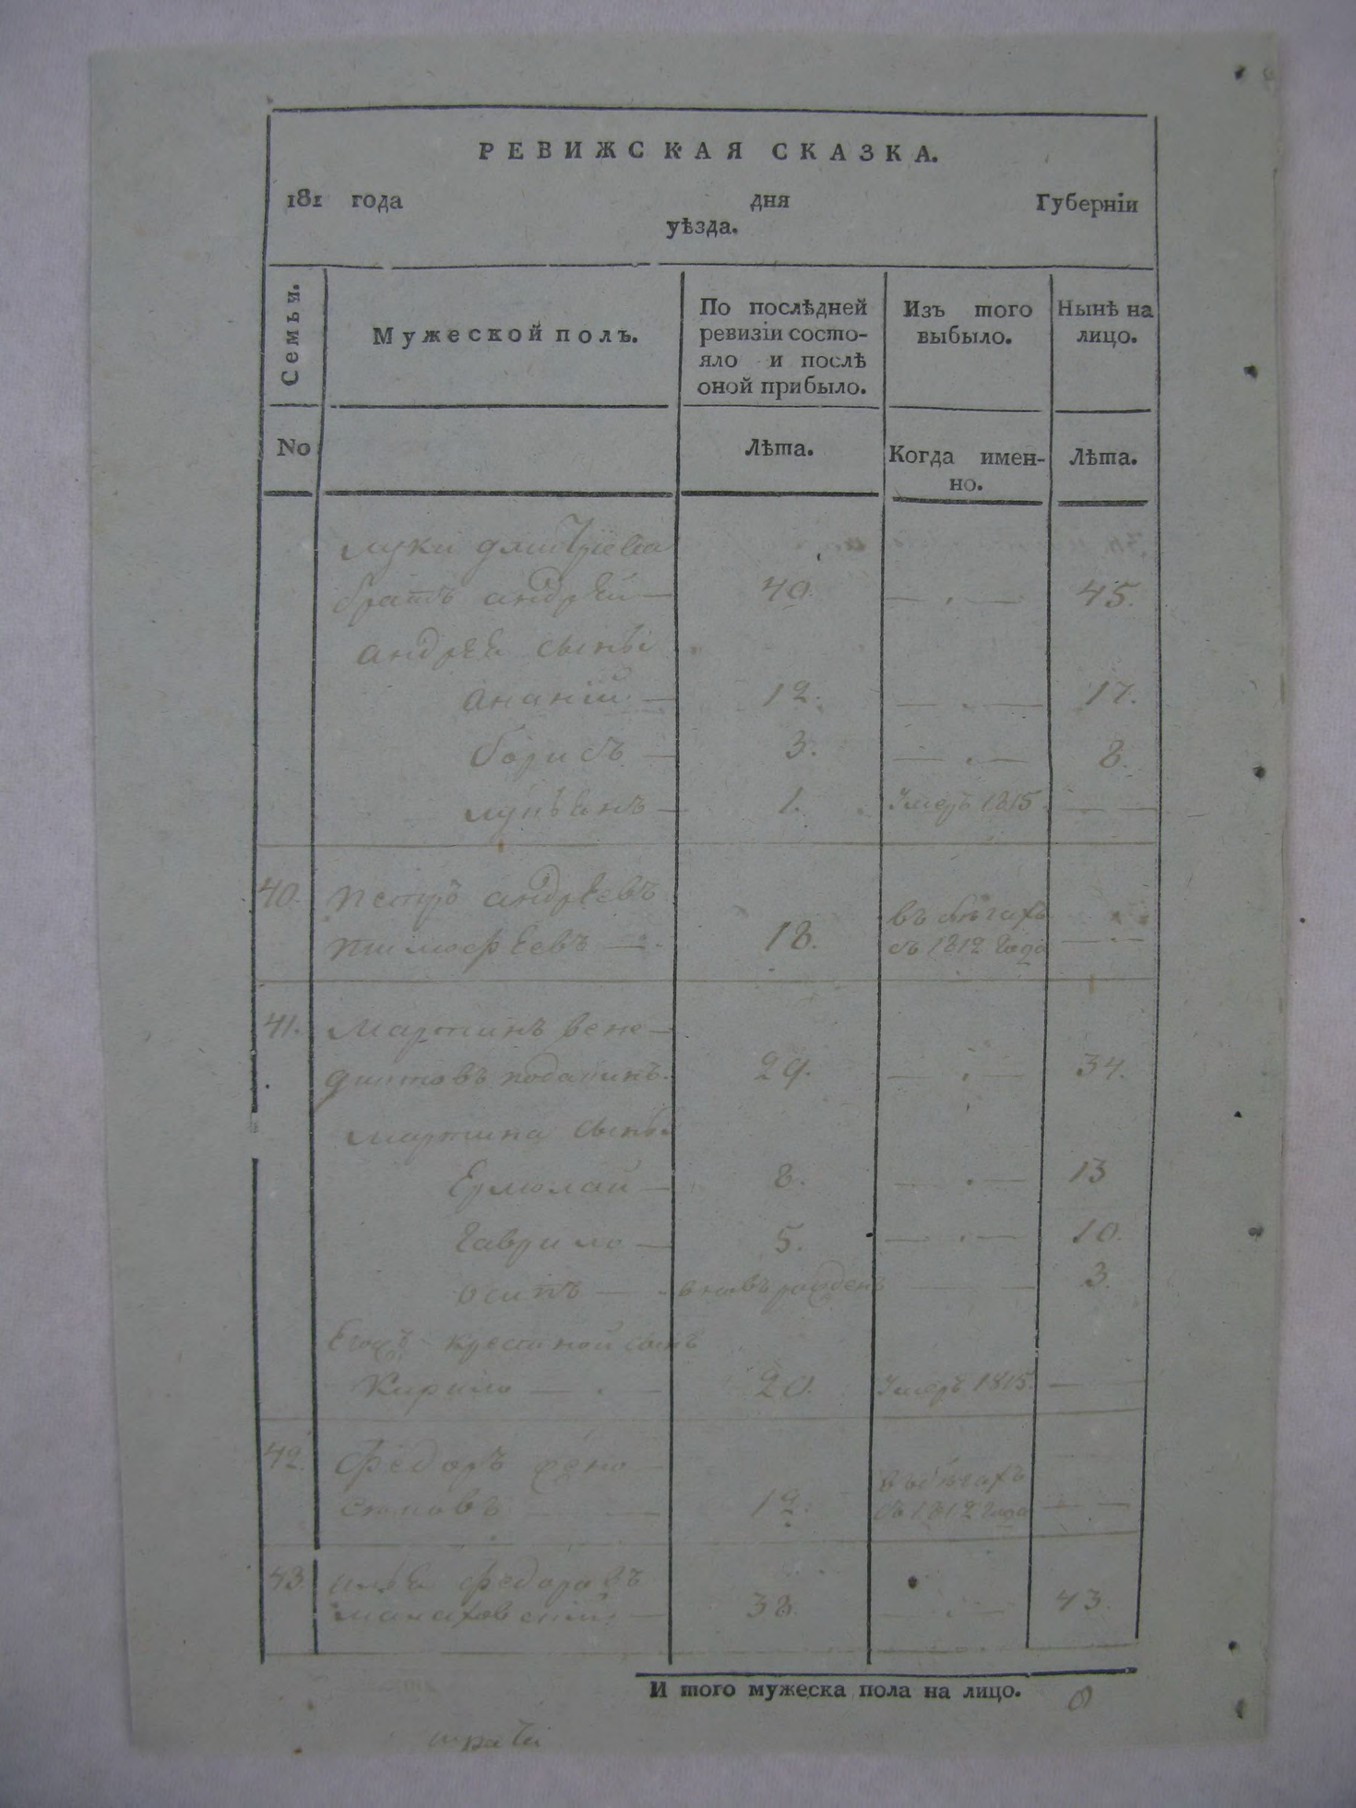 РЕВИЖСКАЯ СКАЗКА.
181 года дня Губерніи
уѣзда.
Семьи. Мужеской полъ. По послѣдней ревизіи состояло и послѣ оной прибыло. Изъ того выбыло. Нынѣ на лицо.
No Лѣта. Когда именно. Лѣта.
луки дмитріева
братъ андрей — 40. — . — 45.
андрея сыны
ананій — 12. — . — 17.
борисъ — 3. — . — 8.
1. Умеръ 1815. — —
40. петръ андреевъ
тимофеевъ — 18. въ бѣгахъ съ 1812 года — . —
41. Мартинъ вене-
диктовъ 29. — . — 34.
мартина сыны
Ермолай — 8. — . — 13
Гаврило — 5. — . — 10.
осипъ — вновь рожденъ — — 3.
Егожъ сынъ
Кирило — . — 20. Умеръ 1815. — —
42. Федоръ
въ бѣгахъ съ 1812 года — —
43. илья федоровъ
38. — . — 43.
И того мужеска пола на лицо. 8